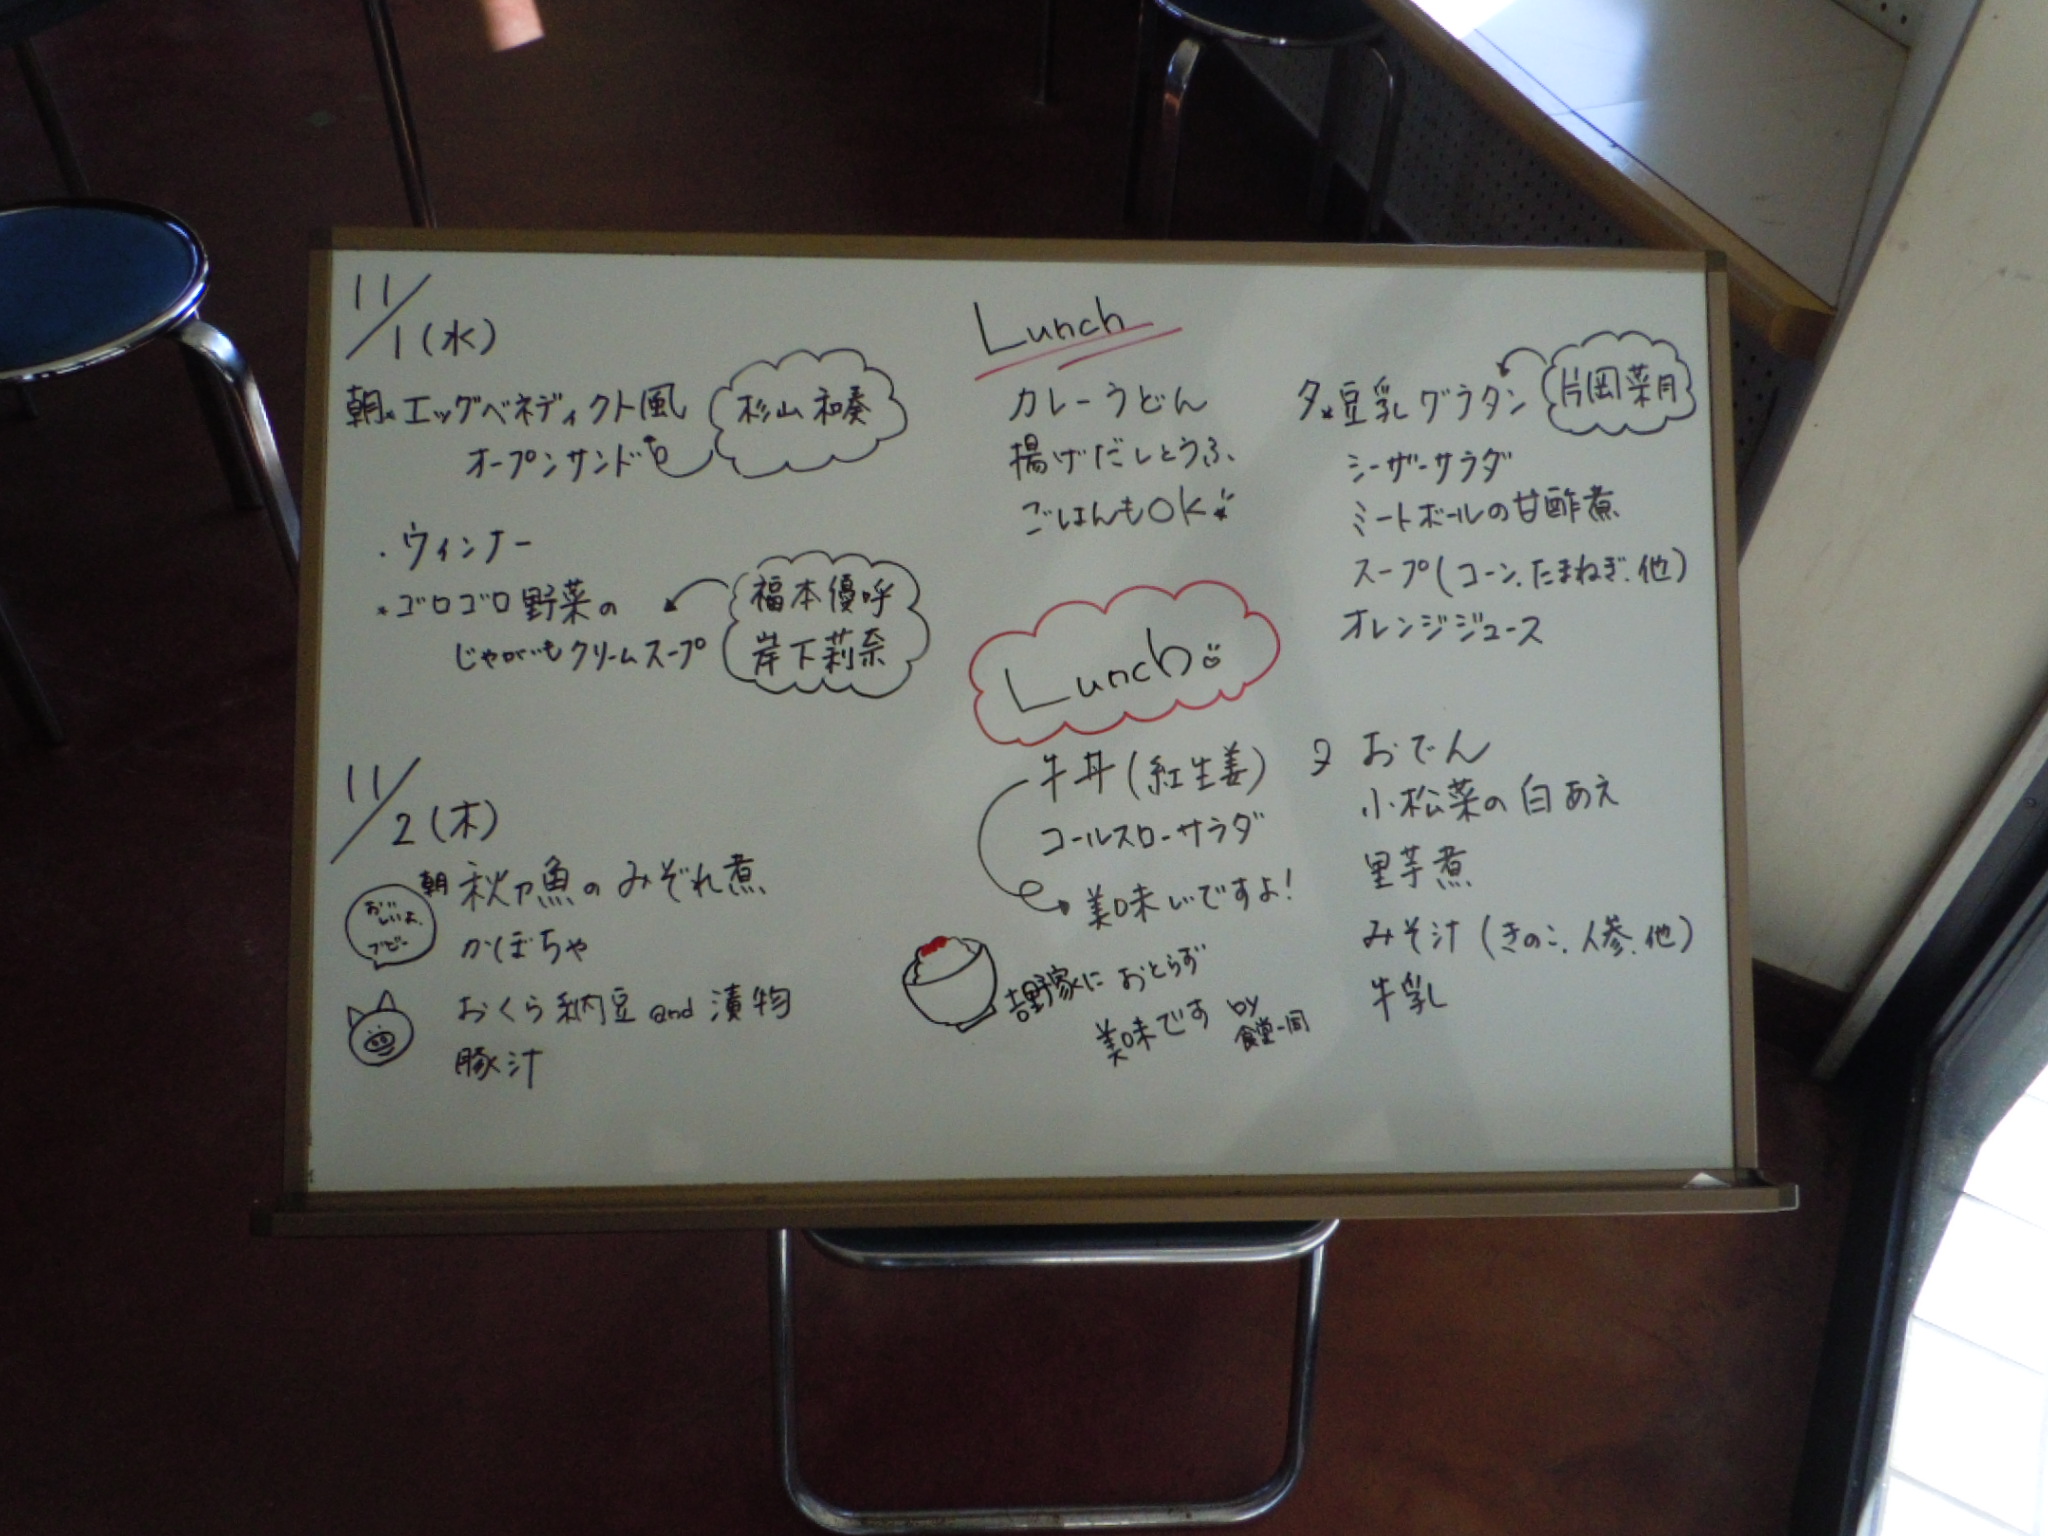 11/1(水)
朝*エッグベネディクト風
オープンサンド
杉山 和奏
・ウィンナー
*ゴロゴロ野菜の
じゃがいもクリームスープ
福本優呼
岸下莉奈
Lunch
カレーうどん
揚げだしとうふ
ごはんもOK
夕*豆乳グラタン
片岡菜月
シーザーサラダ
ミートボールの甘酢煮
スープ(コーン.たまねぎ.他)
オレンジジュース
11/2(木)
朝 秋刀魚のみぞれ煮
かぼちゃ
おくら納豆 and 漬物
豚汁
おいしいよ.
ブビー
Lunch
牛丼(紅生姜)
コールスローサラダ
美味いですよ!
吉野家に おとらず
美味です by
食堂一同
夕 おでん
小松菜の白あえ
里芋煮
みそ汁(きのこ.人参.他)
牛乳